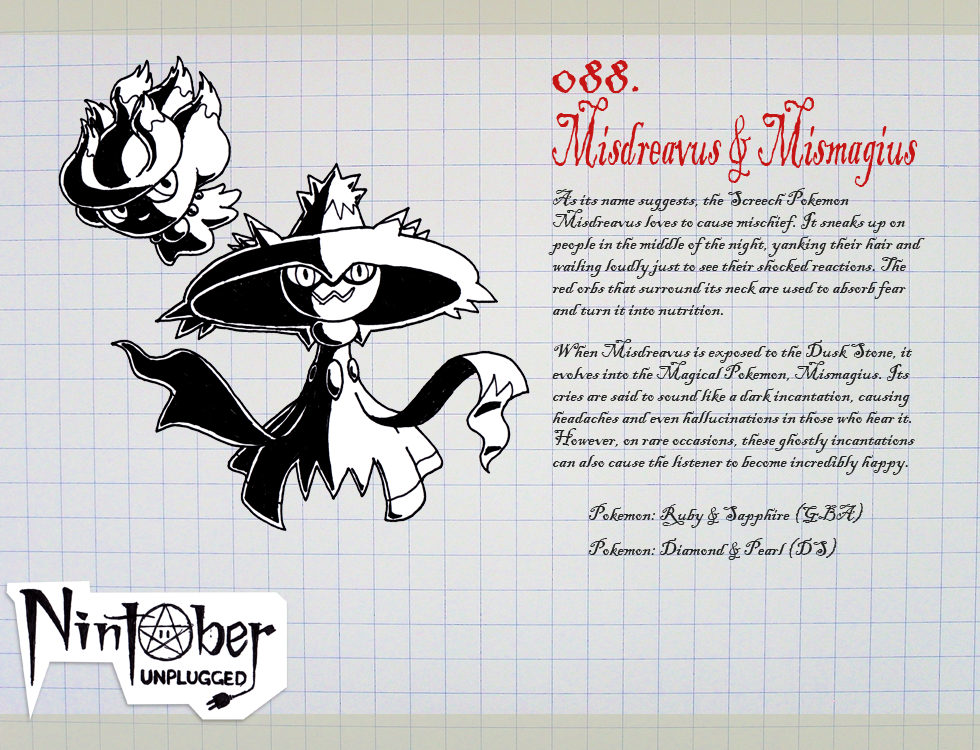 088.
Misdreavus & Mismagius
As its name suggests, the Screech Pokemon
Misdreavus loves to cause mischief. It sneaks up on
people in the middle of the night, yanking their hair and
wailing loudly just to see their shocked reactions. The
red orbs that surround its neck are used to absorb fear
and turn it into nutrition.
When Misdreavus is exposed to the Dusk Stone, it
evolves into the Magical Pokemon, Mismagius. Its
cries are said to sound like a dark incantation, causing
headaches and even hallucinations in those who hear it.
However, on rare occasions, these ghostly incantations
can also cause the listener to become incredibly happy.
Pokemon: Ruby & Sapphire (GBA)
Pokemon: Diamond & Pearl (DS)
Nintober
UNPLUGGED